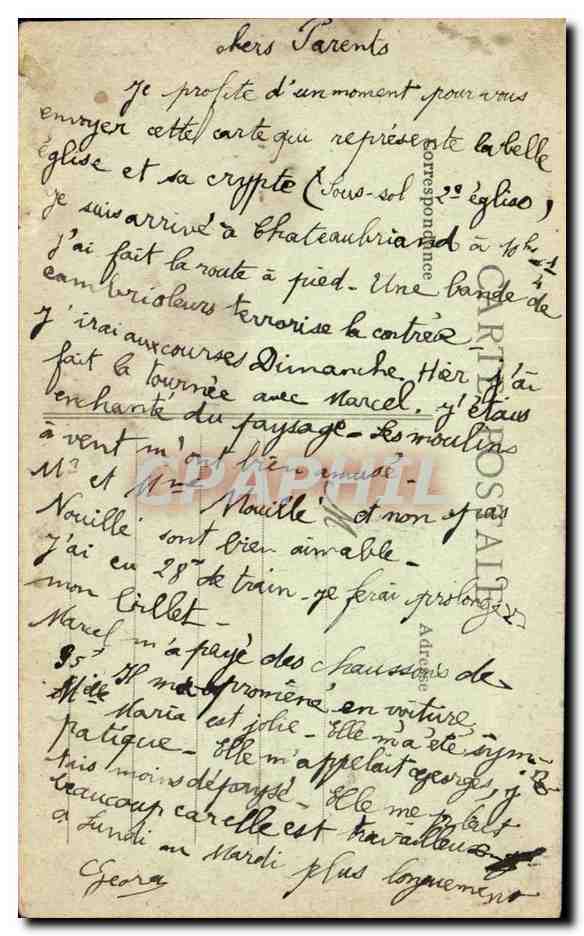 chers Parents
Je profite d'un moment pour vous
envoyer cette carte qui représente la belle
église et sa crypte (Sous-sol 2e église)
je suis arrivé à Chateaubriand à 10h 1/4
j'ai fait la route à pied - Une bande de
cambrioleurs terrorise la contrée -
j'irai aux courses Dimanche. Hier j'ai
fait la tournée avec Marcel. j'étais
enchanté du paysage - Les moulins
à vent m'ont bien amusé -
Mr et Mme Mouillé et non pas
Nouillé sont bien aimable -
J'ai eu 28m de train - je ferai prolonger
mon billet -
Marcel m'a payé des chaussons de
95f Il m'a promené en voiture
Mlle Maria est jolie - Elle m'a été sym-
patique - Elle m'appelait georges, j'é
tais moins dépaysé - Elle me plait
beaucoup car elle est travailleuse
à Lundi ou Mardi plus longuement
Georg
Correspondance
CARTE POSTALE
Adresse
CPAPHIL